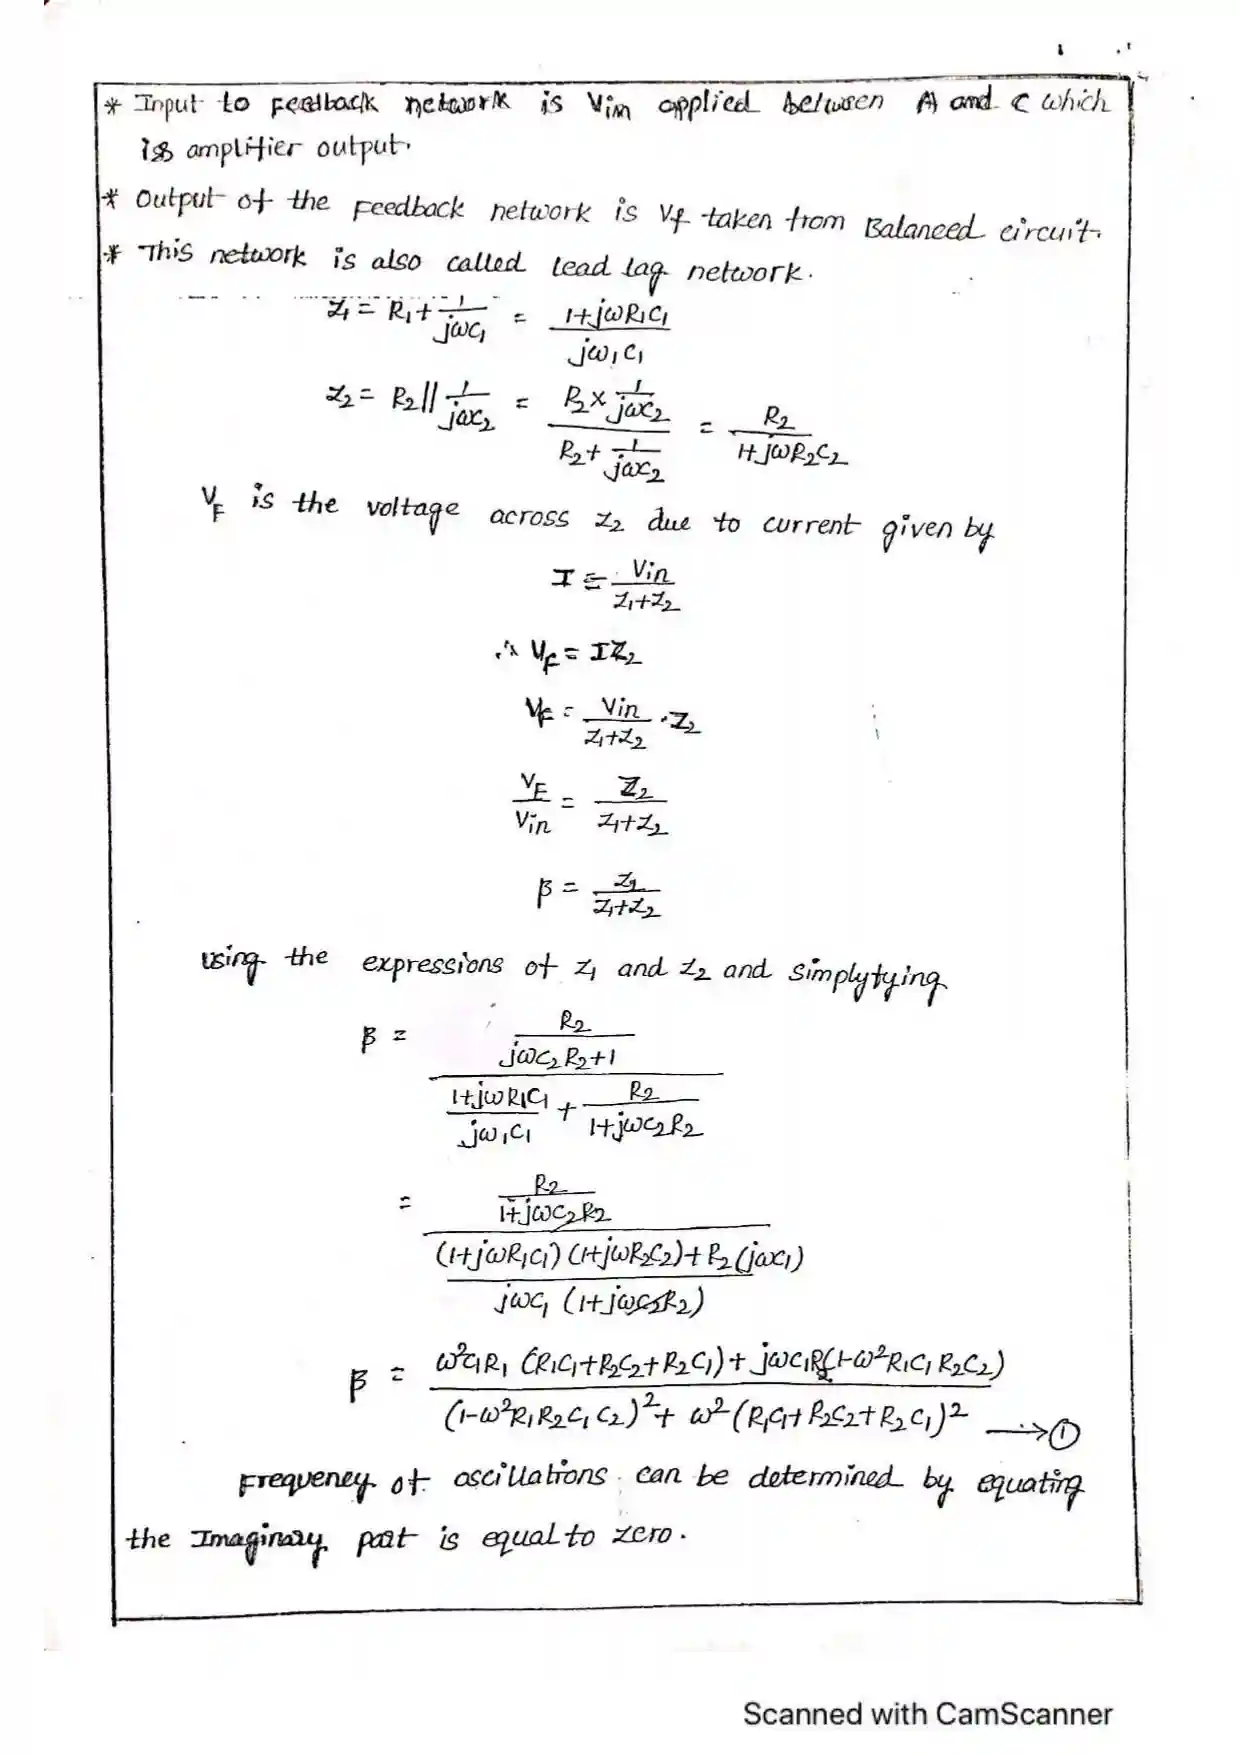 * Input to feedback network is Vin applied between A and C which
is amplifier output.
* Output of the Feedback network is Vf taken from Balanced circuit.
* This network is also called lead lag network.
Z₁ = R₁ + 1/jωC₁ = (1+jωR₁C₁)/(jω₁C₁)
Z₂ = R₂ || 1/jωC₂ = (R₂ × 1/jωC₂)/(R₂ + 1/jωC₂) = R₂/(1+jωR₂C₂)
V_F is the voltage across Z₂ due to current given by
I = Vin/(Z₁+Z₂)
∴ V_F = IZ₂
V_F = Vin/(Z₁+Z₂) . Z₂
V_F/Vin = Z₂/(Z₁+Z₂)
β = Z₂/(Z₁+Z₂)
using the expressions of Z₁ and Z₂ and simplytying
β = (R₂/(jωC₂R₂+1))/((1+jωR₁C₁)/(jω₁C₁) + R₂/(1+jωC₂R₂))
= (R₂/(1+jωC₂R₂))/(((1+jωR₁C₁)(1+jωR₂C₂)+R₂(jωC₁))/(jωC₁(1+jωC₂R₂)))
β = (ω²C₁R₁(R₁C₁+R₂C₂+R₂C₁)+jωC₁R₂(1-ω²R₁C₁R₂C₂))/((1-ω²R₁R₂C₁C₂)²+ω²(R₁C₁+R₂C₂+R₂C₁)²) → ①
Frequency of oscillations can be determined by equating
the Imaginary part is equal to zero.
Scanned with CamScanner